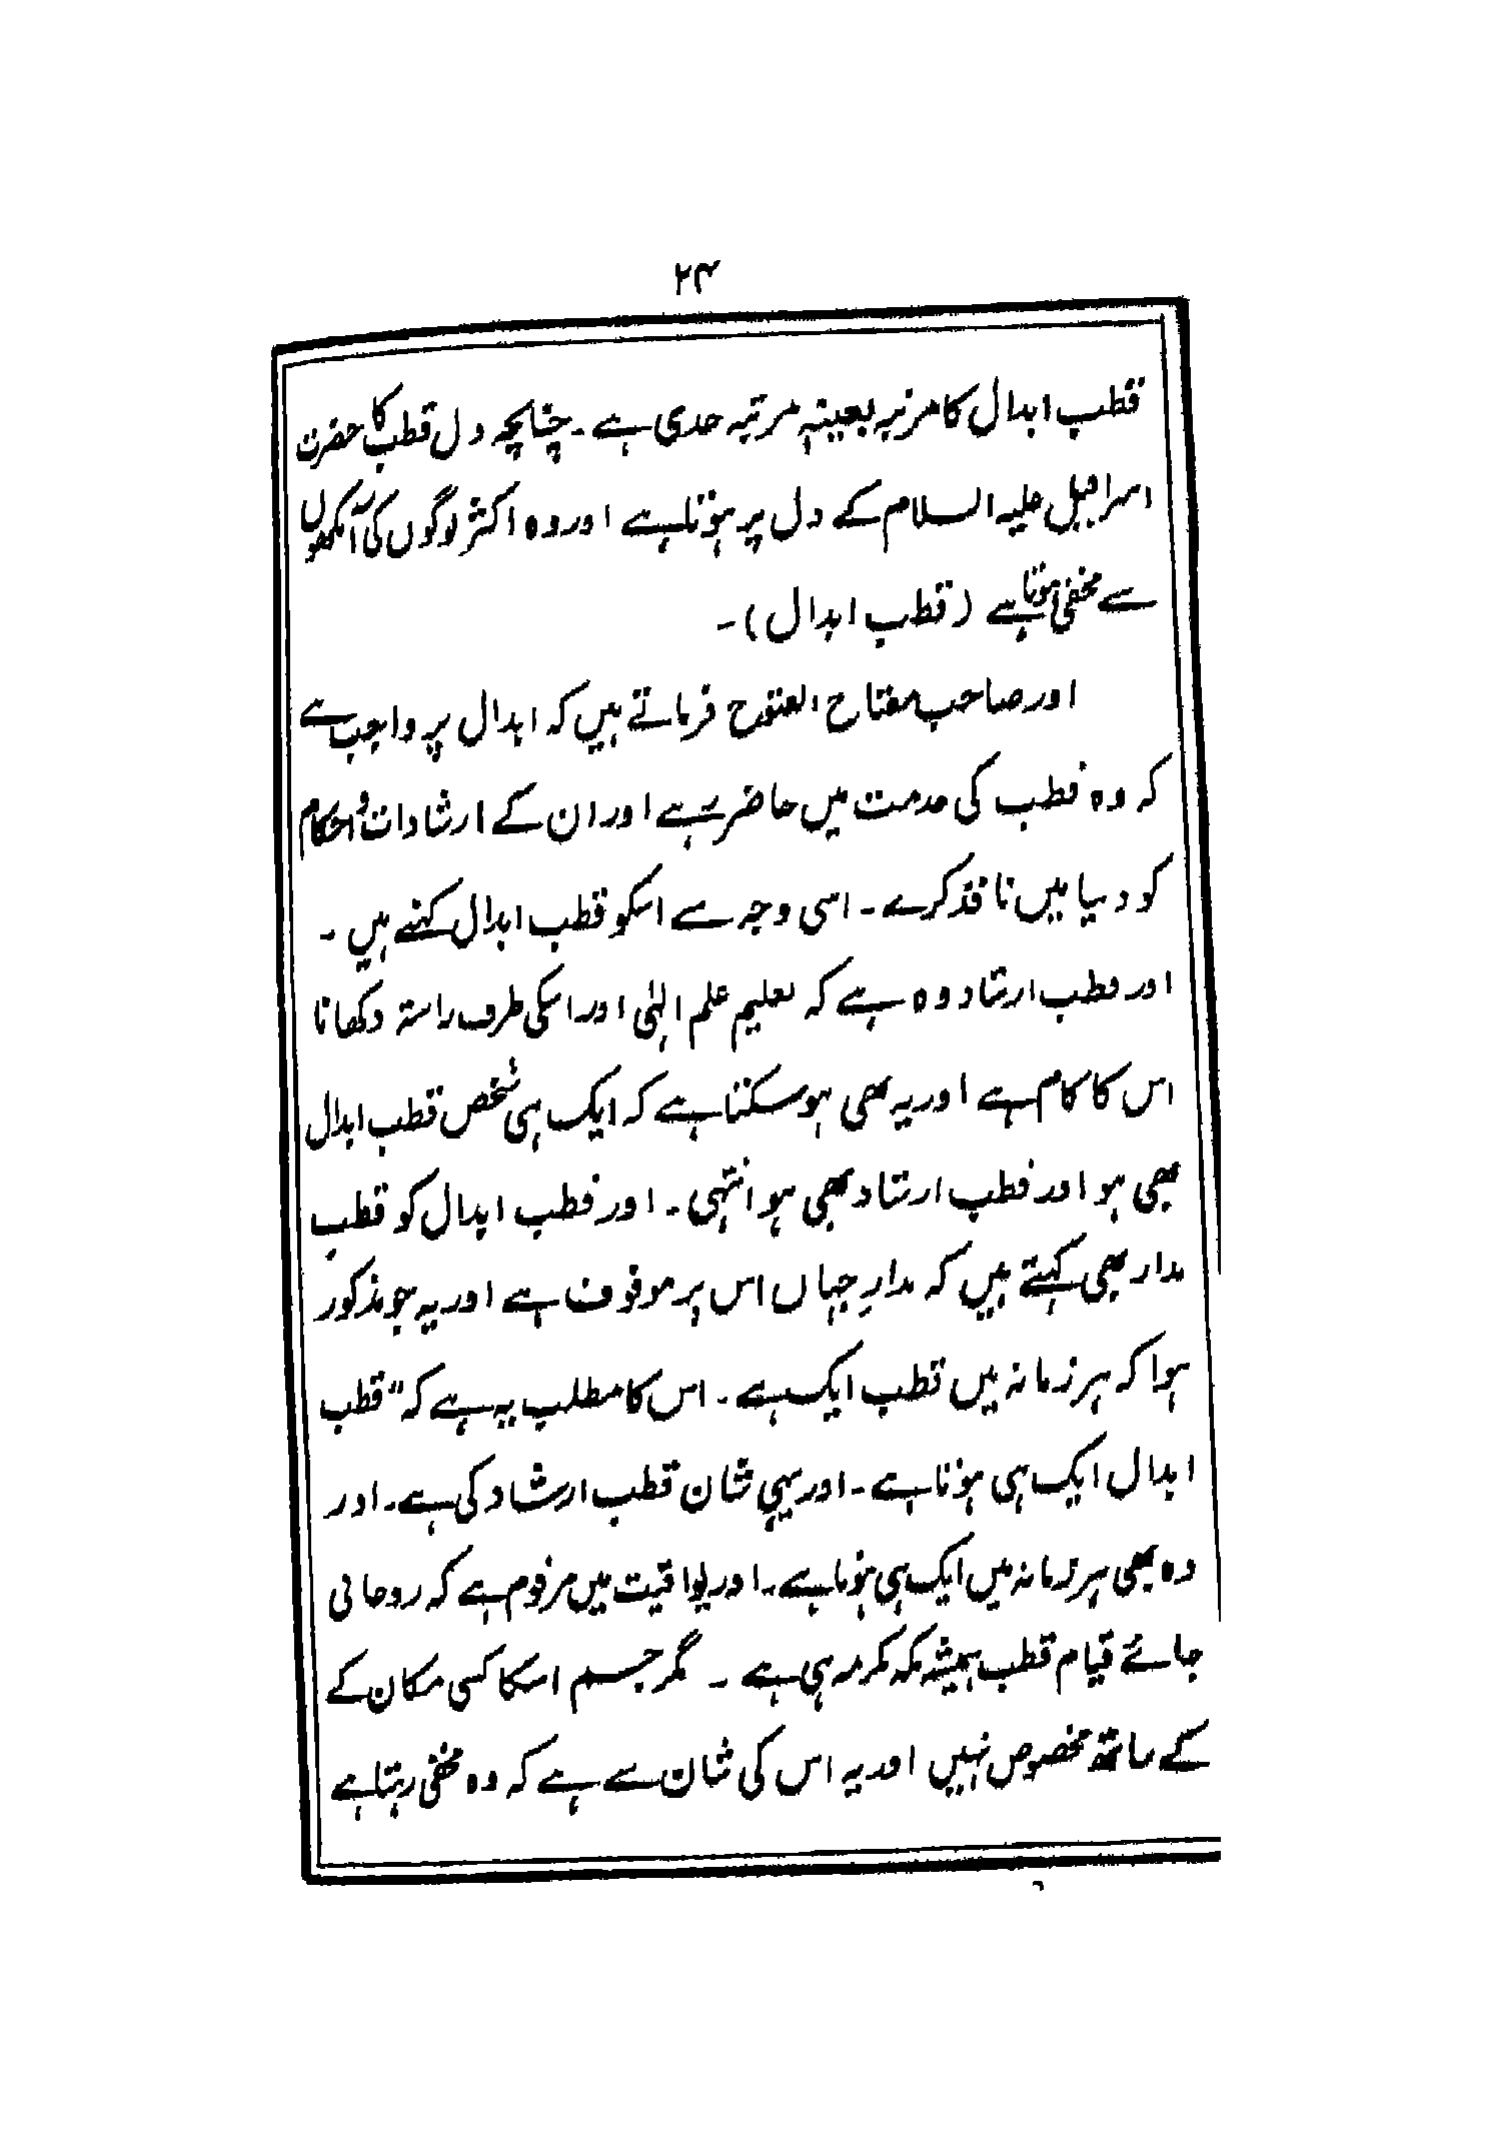 ۲۴
قطب ابدال کا مرتبہ بعینہٖ مرتبہ مدی ہے ۔ چنانچہ دل قطب کا حضرت
اسرافیل علیہ السلام کے دل پر ہوتا ہے اور وہ اکثر لوگوں کی آنکھوں
سے مخفی ہوتا ہے (قطب ابدال)۔
اور صاحب مفتاح الفتوح فرماتے ہیں کہ ابدال پر واجب ہے
کہ وہ قطب کی خدمت میں حاضر رہے اور ان کے ارشادات و احکام
کو دنیا میں نافذ کرے ۔ اسی وجہ سے اسکو قطب ابدال کہتے ہیں ۔
اور قطب ارشاد وہ ہے کہ تعلیم علم الہٰی اور اسکی طرف راستہ دکھانا
اس کا کام ہے اور یہ بھی ہو سکتا ہے کہ ایک ہی شخص قطب ابدال
بھی ہو اور قطب ارشاد بھی ہو انتہی ۔ اور قطب ابدال کو قطب
مدار بھی کہتے ہیں کہ مدارِ جہاں اس پر موقوف ہے اور یہ جو مذکور
ہوا کہ ہر زمانہ میں قطب ایک ہے ۔ اس کا مطلب یہ ہے کہ “قطب
ابدال ایک ہی ہوتا ہے ۔ اور یہی شان قطب ارشاد کی ہے ۔ اور
وہ بھی ہر زمانہ میں ایک ہی ہوتا ہے ۔ اور یواقیت میں مرقوم ہے کہ روحانی
جائے قیام قطب ہمیشہ مکہ مکرمہ ہی ہے ۔ مگر جسم اسکا کسی مکان کے
کے ساتھ مخصوص نہیں اور یہ اس کی شان سے ہے کہ وہ مخفی رہتا ہے